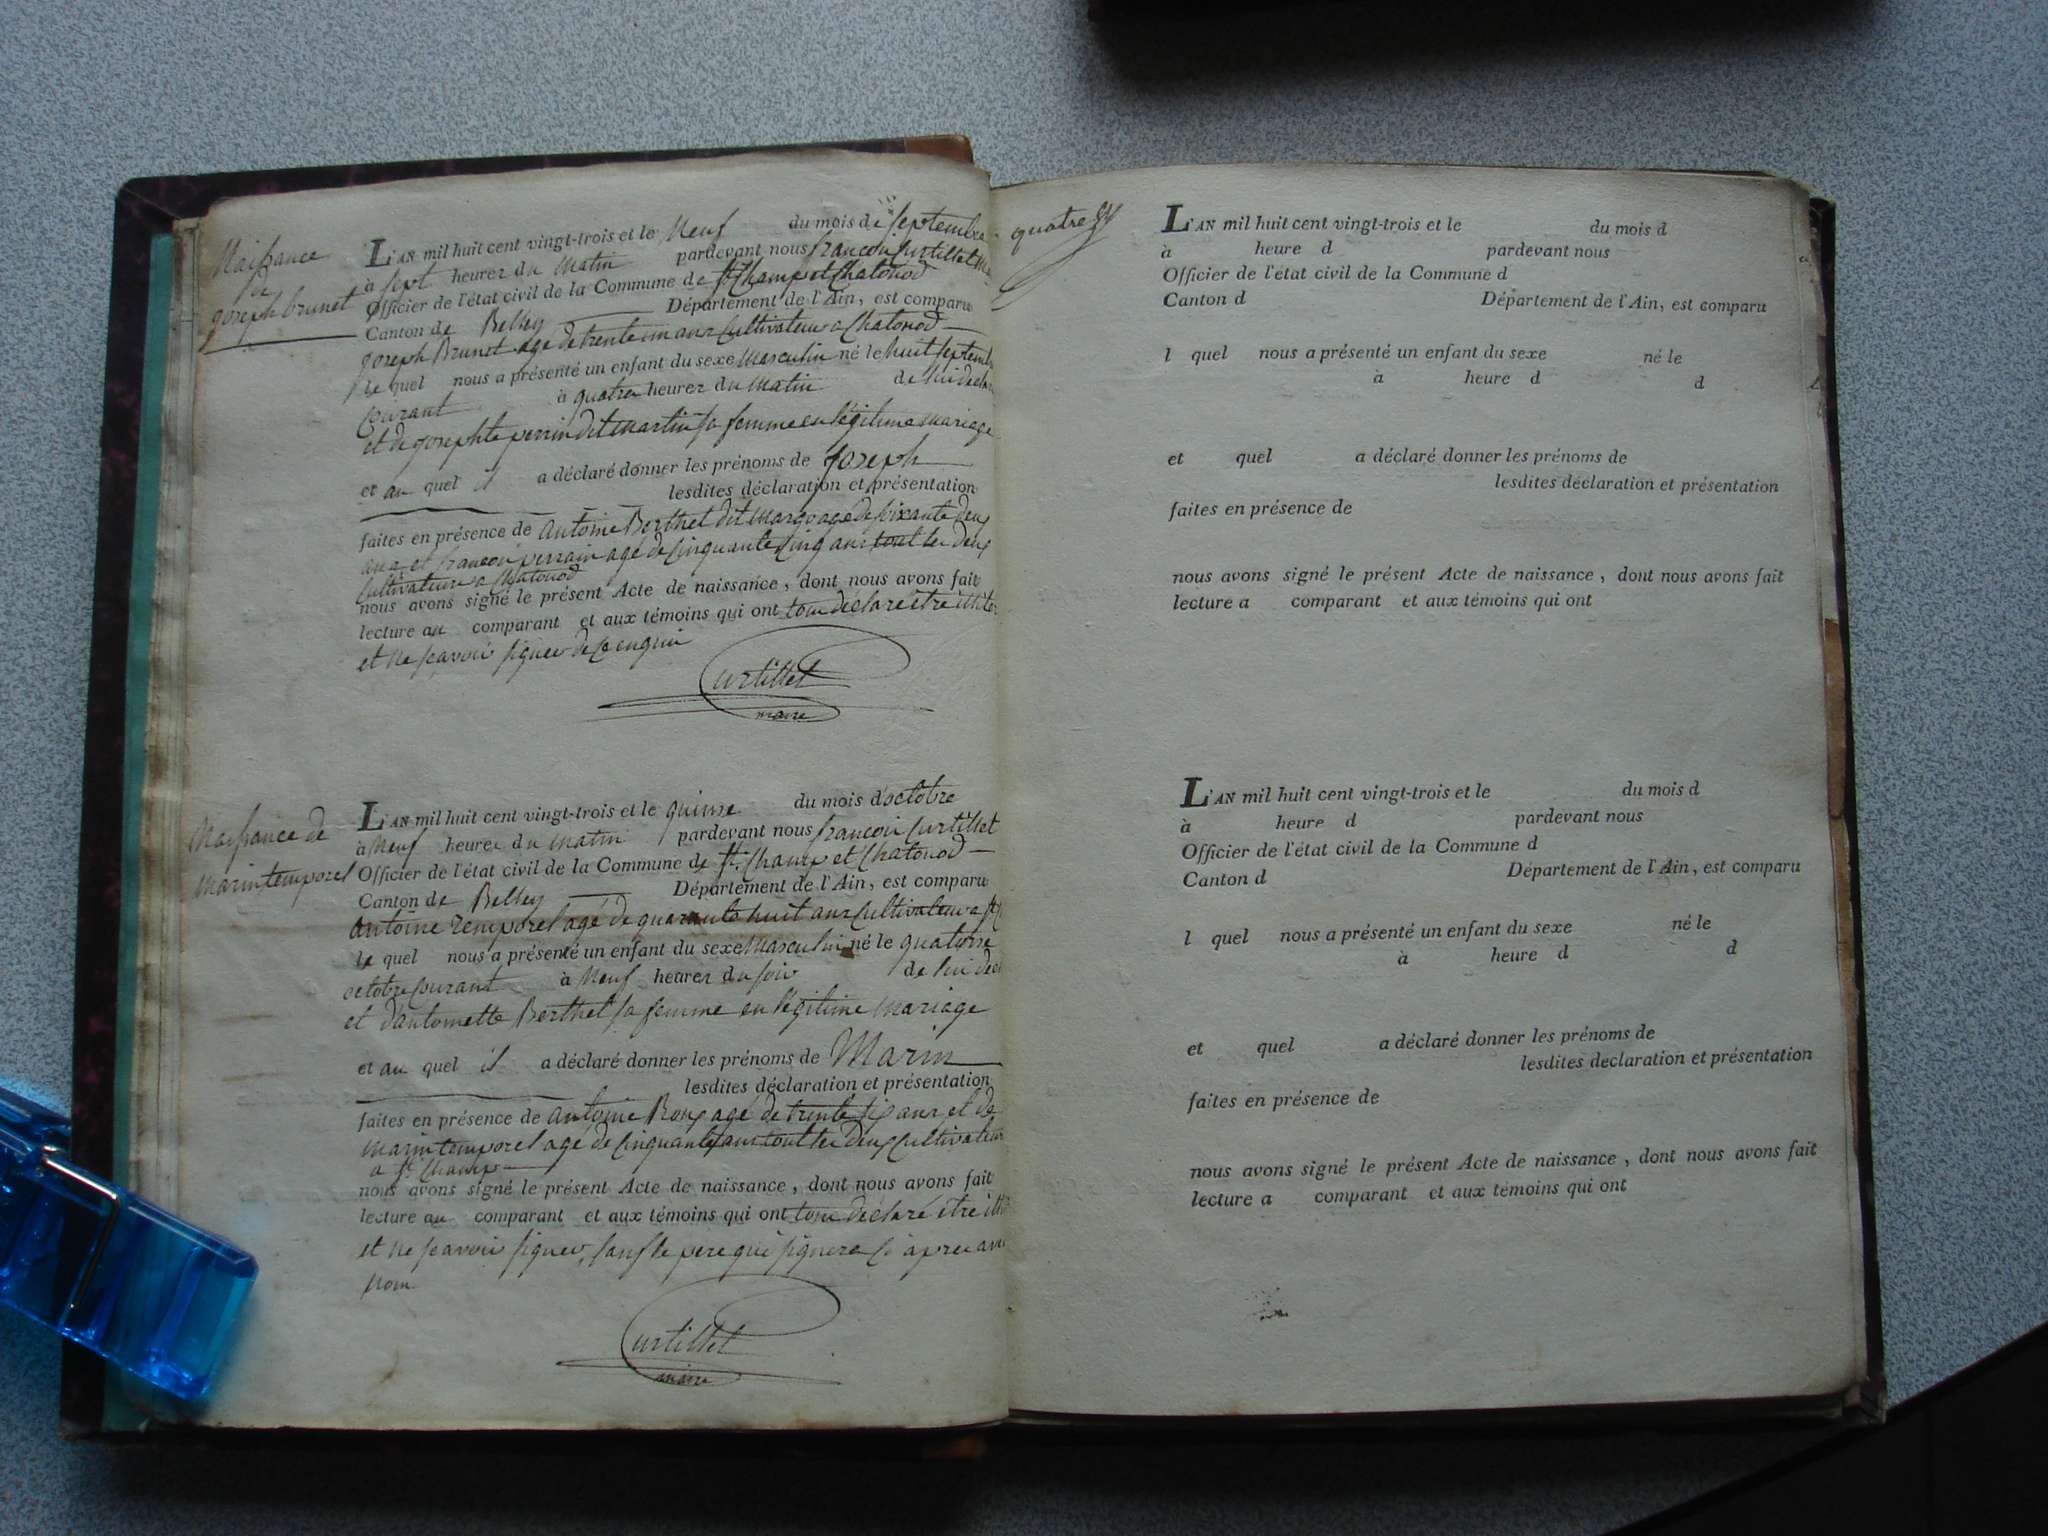 Naissance
de
joseph brunet
L'AN mil huit cent vingt-trois et le Neuf du mois de septembre
à sept heures du matin pardevant nous francois Curtillet
Officier de l'état civil de la Commune de St Champ et Chatonod
Canton de Belley Département de l'Ain, est comparu
joseph Brunet age de trente un ans Cultivateur a Chatonod
le quel nous a présenté un enfant du sexe masculin né le huit septembre
Courant à quatre heures du matin de lui
et de josephte perrin dit martin sa femme en légitime mariage
et au quel il a déclaré donner les prénoms de joseph
lesdites déclaration et présentation
faites en présence de antoine Berthet dit margo age de soixante deux
ans et francois perrain agé de cinquante cinq ans tout les deux
Cultivateurs a Chatonod
nous avons signé le présent Acte de naissance, dont nous avons fait
lecture au comparant et aux témoins qui ont tous déclaré être
et ne scavoir signer de ce enquis
Curtillet
maire
Naissance de
marin temporel
L'AN mil huit cent vingt-trois et le quinze du mois d'octobre
à Neuf heures du matin pardevant nous francois Curtillet
Officier de l'état civil de la Commune de St. Champ et Chatonod
Canton de Belley Département de l'Ain, est comparu
antoine temporel agé de quarante huit ans cultivateur a
le quel nous a présenté un enfant du sexe masculin né le quatorze
octobre Courant à Neuf heures du soir de lui
et d'antoinette Berthet sa femme en légitime mariage
et au quel il a déclaré donner les prénoms de Marin
lesdites déclaration et présentation
faites en présence de antoine Roux agé de trente six ans et de
marin temporel agé de cinquante ans tout les deux cultivateurs
a St. Champ
nous avons signé le présent Acte de naissance, dont nous avons fait
lecture au comparant et aux témoins qui ont tous déclaré être
et ne scavoir signer, sauf le pere qui signera ci après
nom.
Curtillet
maire
quatre
L'AN mil huit cent vingt-trois et le du mois d
à heure d pardevant nous
Officier de l'état civil de la Commune d
Canton d Département de l'Ain, est comparu
l quel nous a présenté un enfant du sexe né le
à heure d d
et quel a déclaré donner les prénoms de
lesdites déclaration et présentation
faites en présence de
nous avons signé le présent Acte de naissance, dont nous avons fait
lecture a comparant et aux témoins qui ont
L'AN mil huit cent vingt-trois et le du mois d
à heure d pardevant nous
Officier de l'état civil de la Commune d
Canton d Département de l'Ain, est comparu
l quel nous a présenté un enfant du sexe né le
à heure d d
et quel a déclaré donner les prénoms de
lesdites declaration et présentation
faites en présence de
nous avons signé le présent Acte de naissance, dont nous avons fait
lecture a comparant et aux témoins qui ont